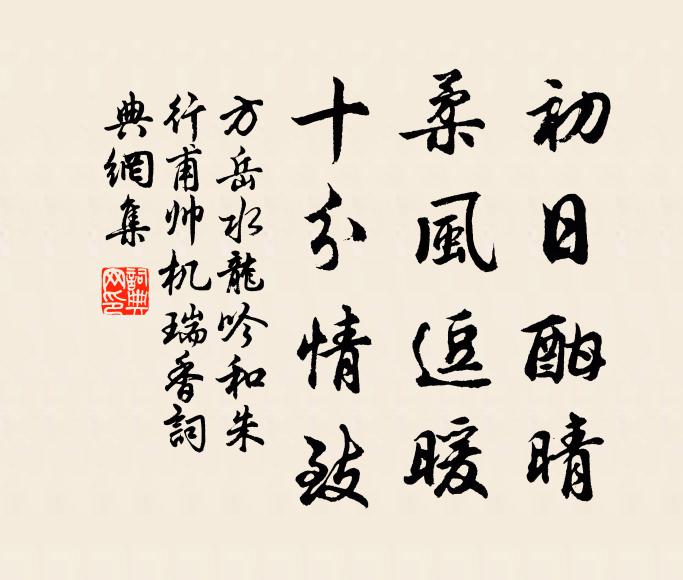 初日酣晴
柔風逗暖
十分情致
方岳水龍吟和朱
行甫帅机瑞香詞
典網集
詞典网印